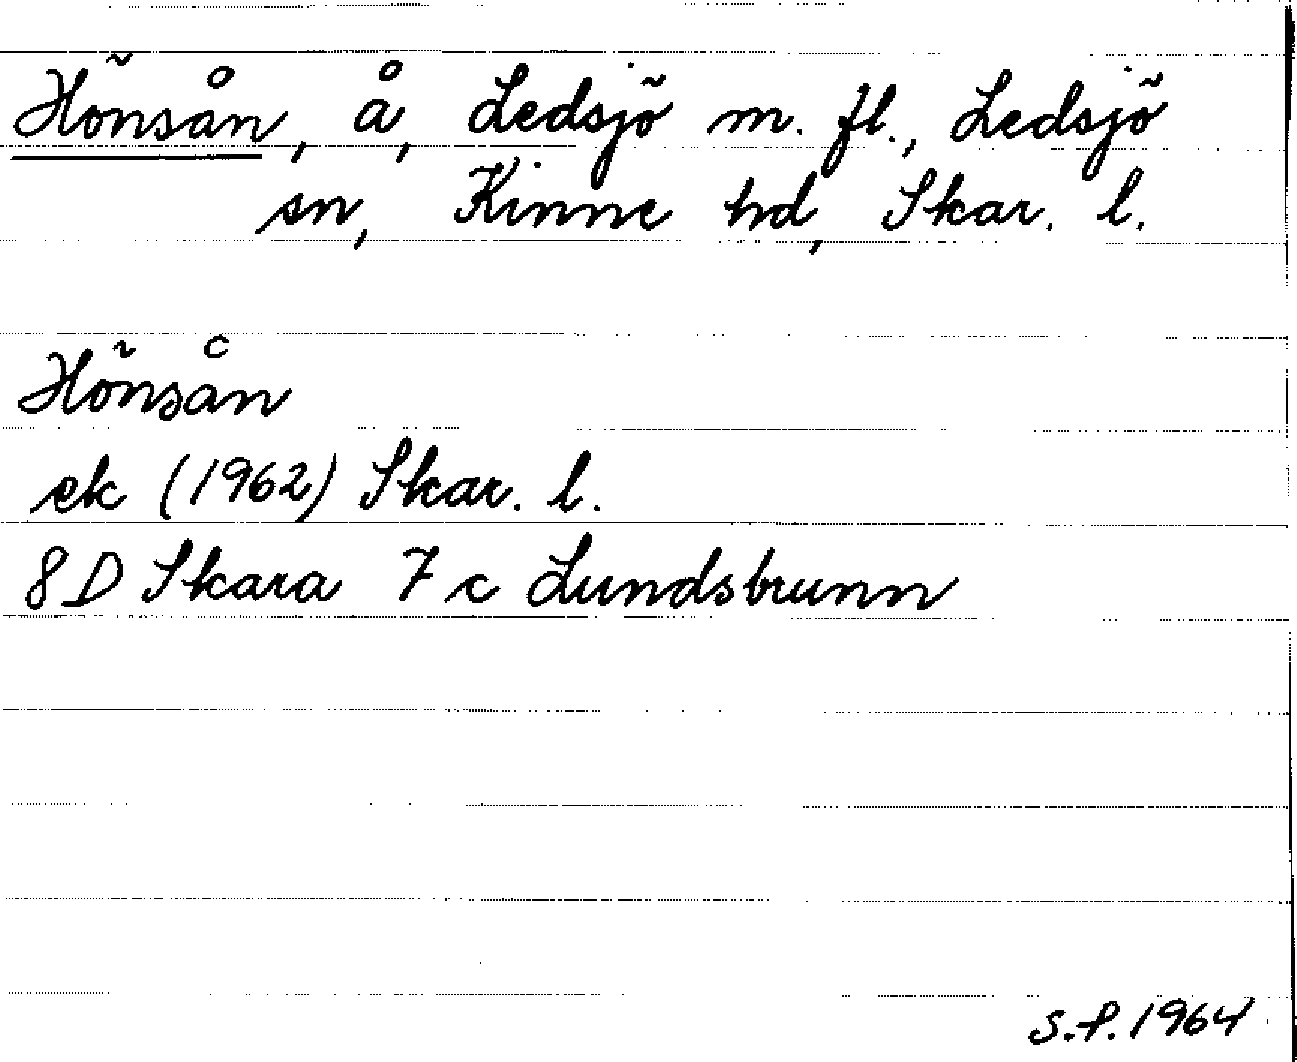 Hönsån, å, Ledsjö m. fl., Ledsjö
sn, Kinne hd, Skar. l.
Hönsån
ek (1962) Skar. l.
8D Skara 7 c Lundsbrunn
S.P. 1964